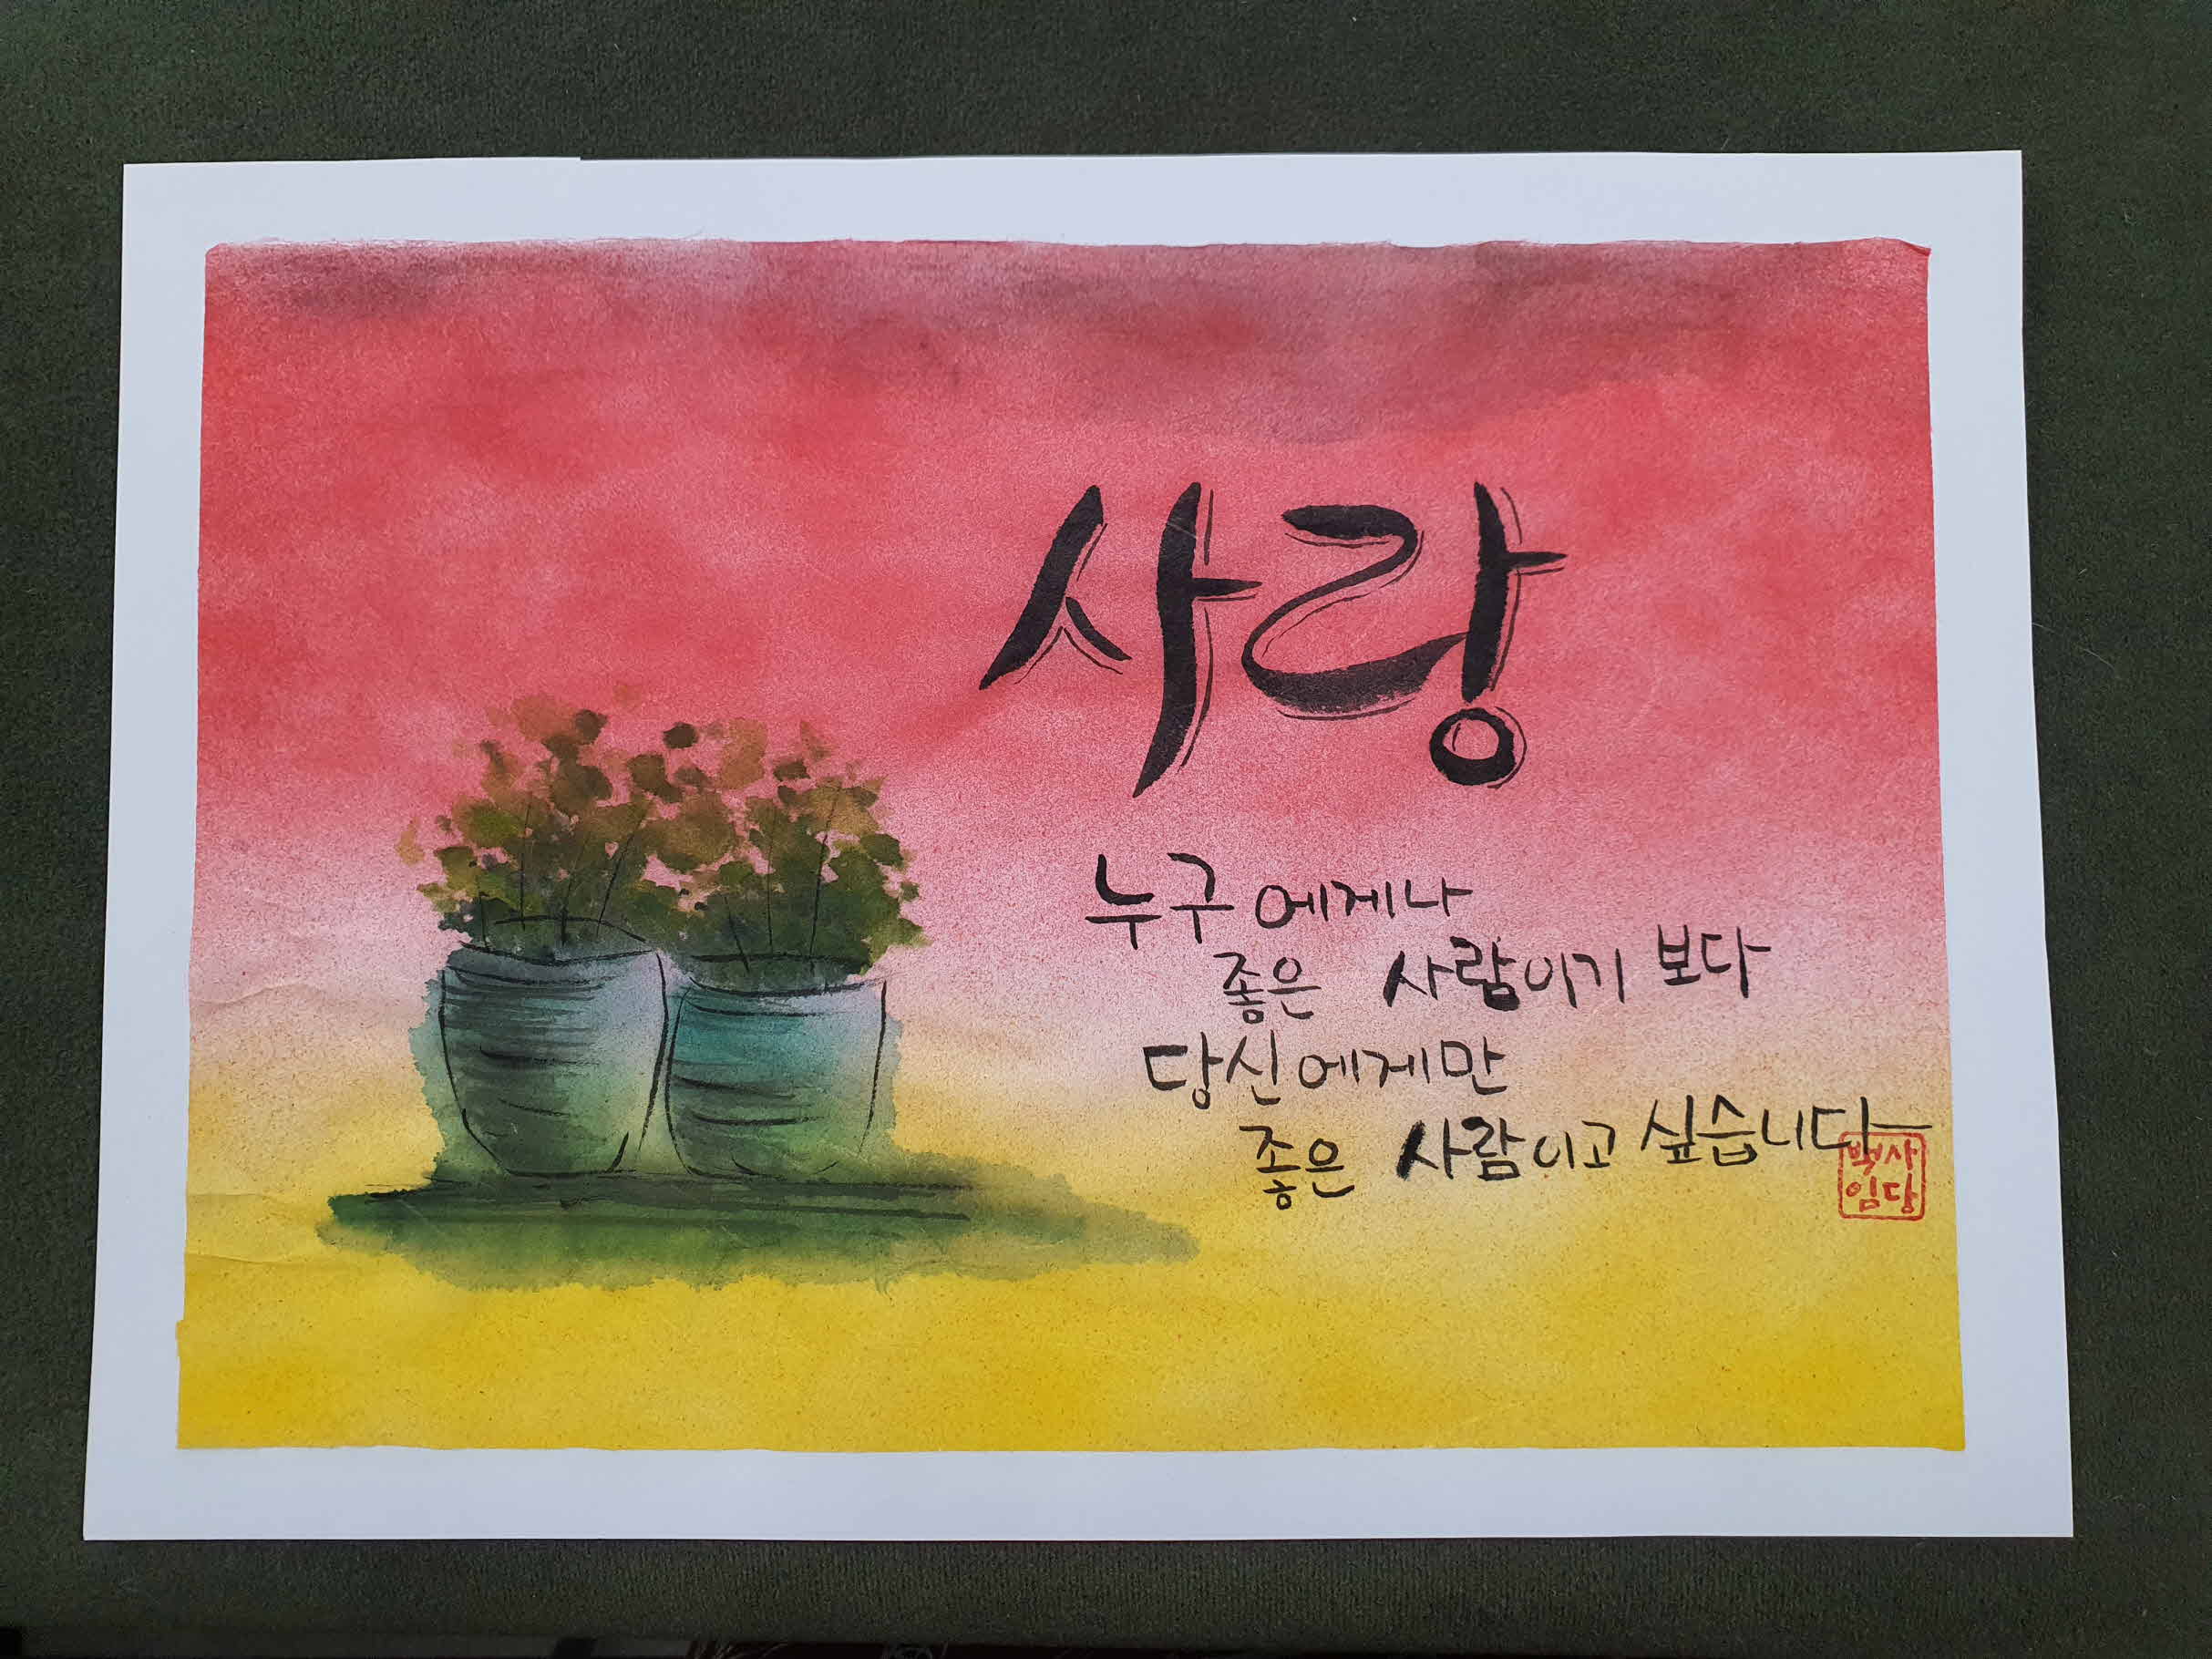 사랑
누구에게나
좋은 사람이기 보다
당신에게만
좋은 사람이고 싶습니다
박사
임당